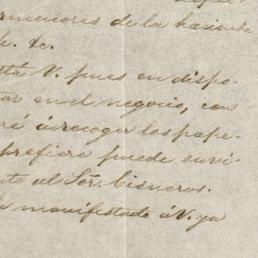 pormenores de la hacienda
&. &c.
está V. pues en dispo-
tar en el negocio, con
rá á recoger los pape-
prefiere puede envi-
nto al Sõr. Cisneros.
manifestado á V. ya